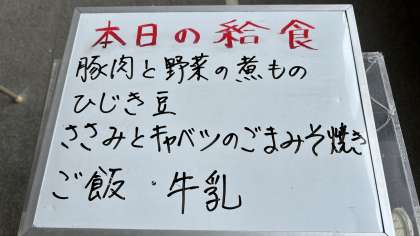 本日の給食
豚肉と野菜の煮もの
ひじき豆
ささみとキャベツのごまみそ焼き
ご飯・牛乳